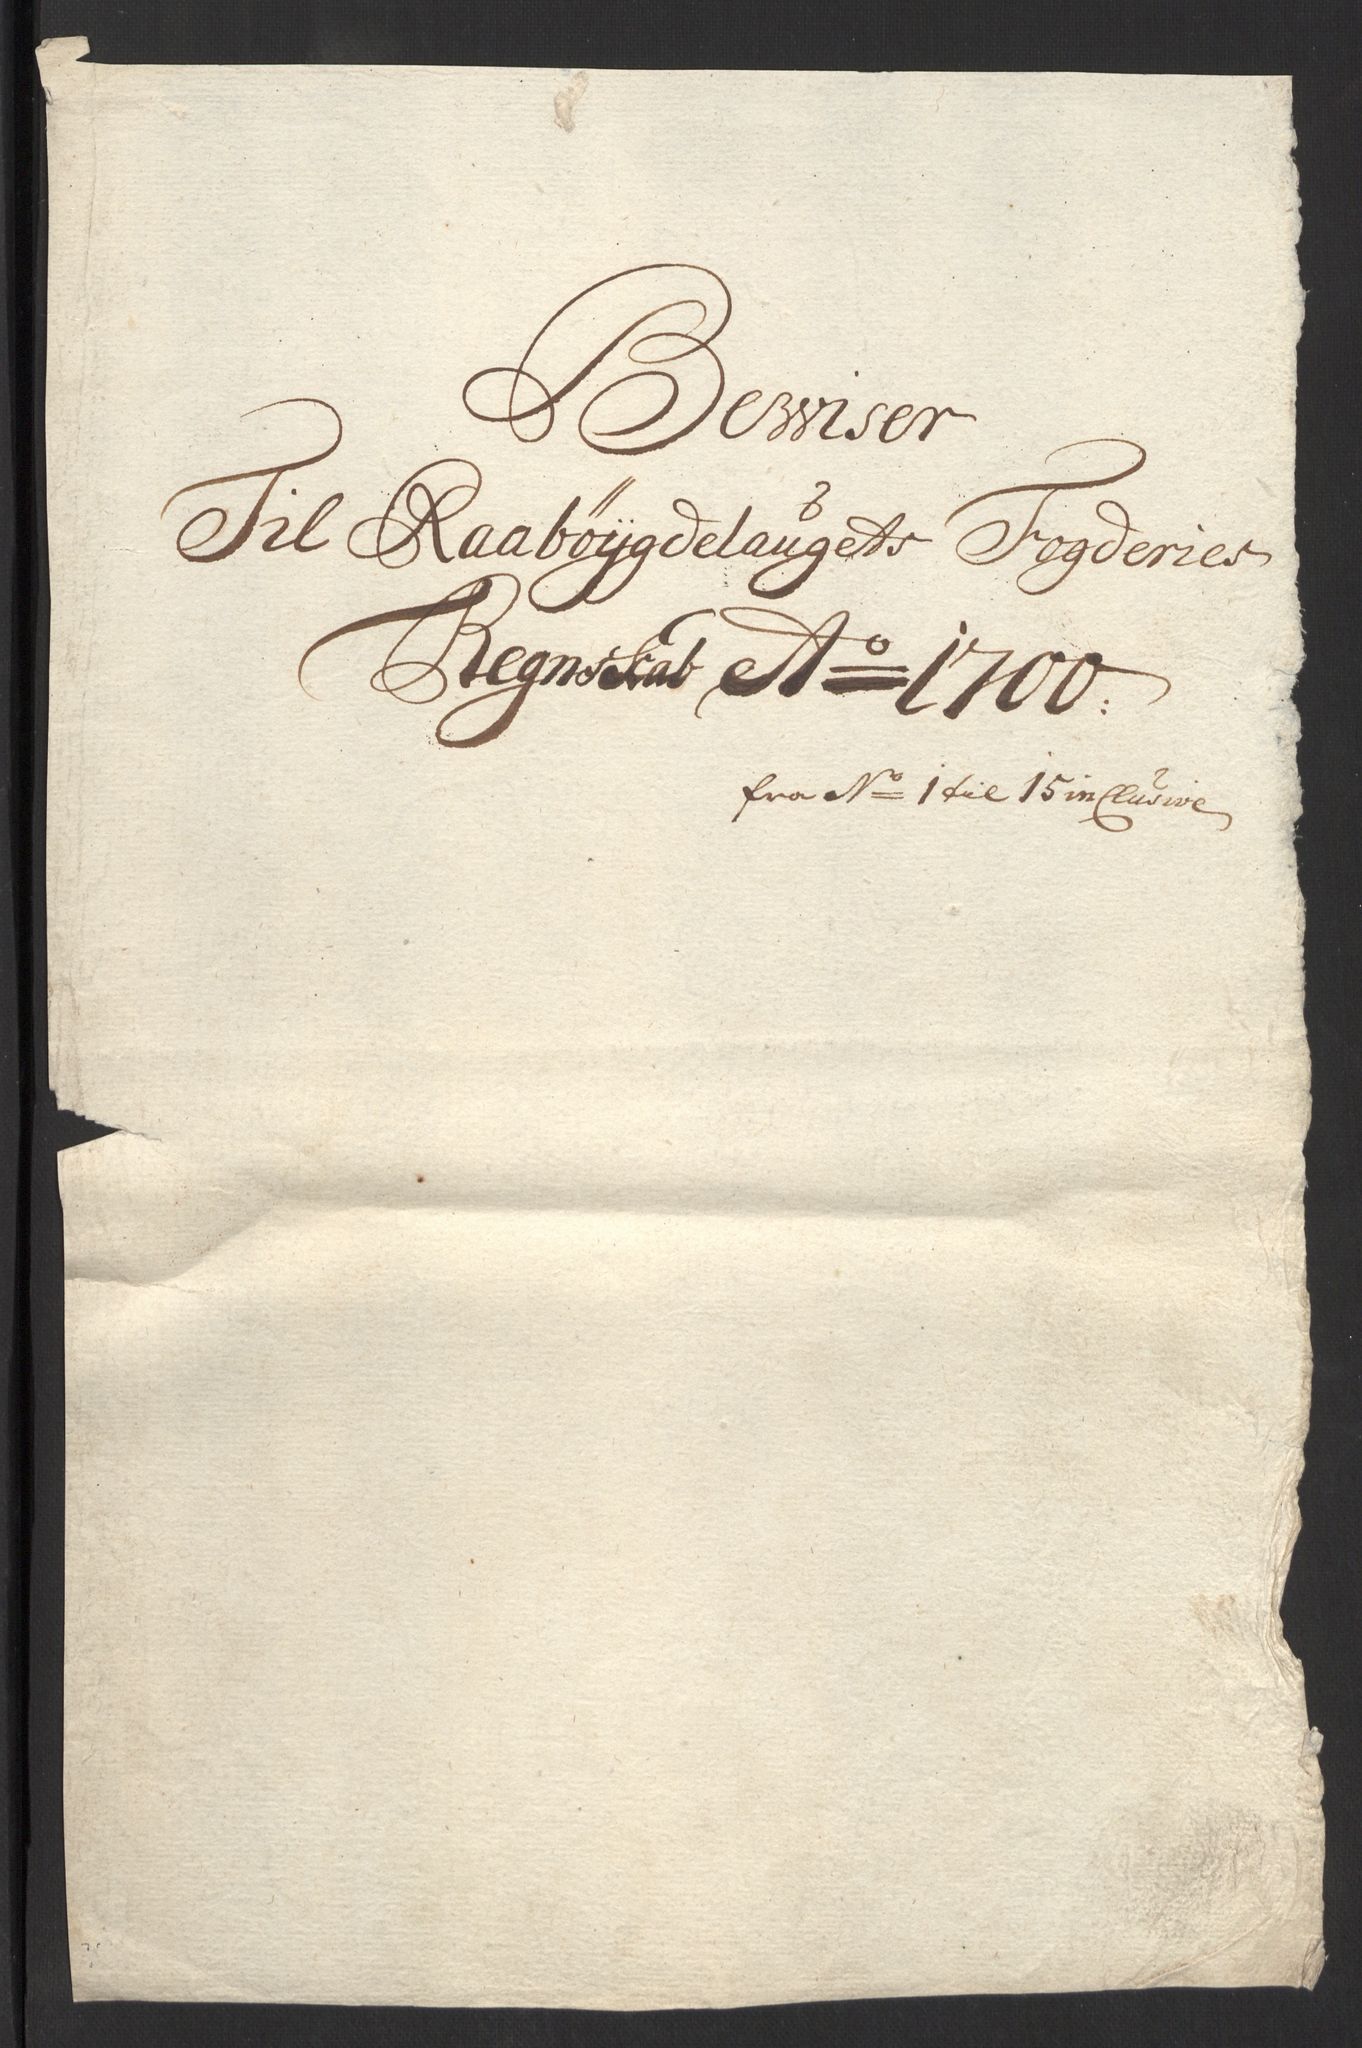 Bewiser
Til Raabÿgdelaugets Fogderies
Regnskab Ao 1700.
fra No 1 til 15 inclusive